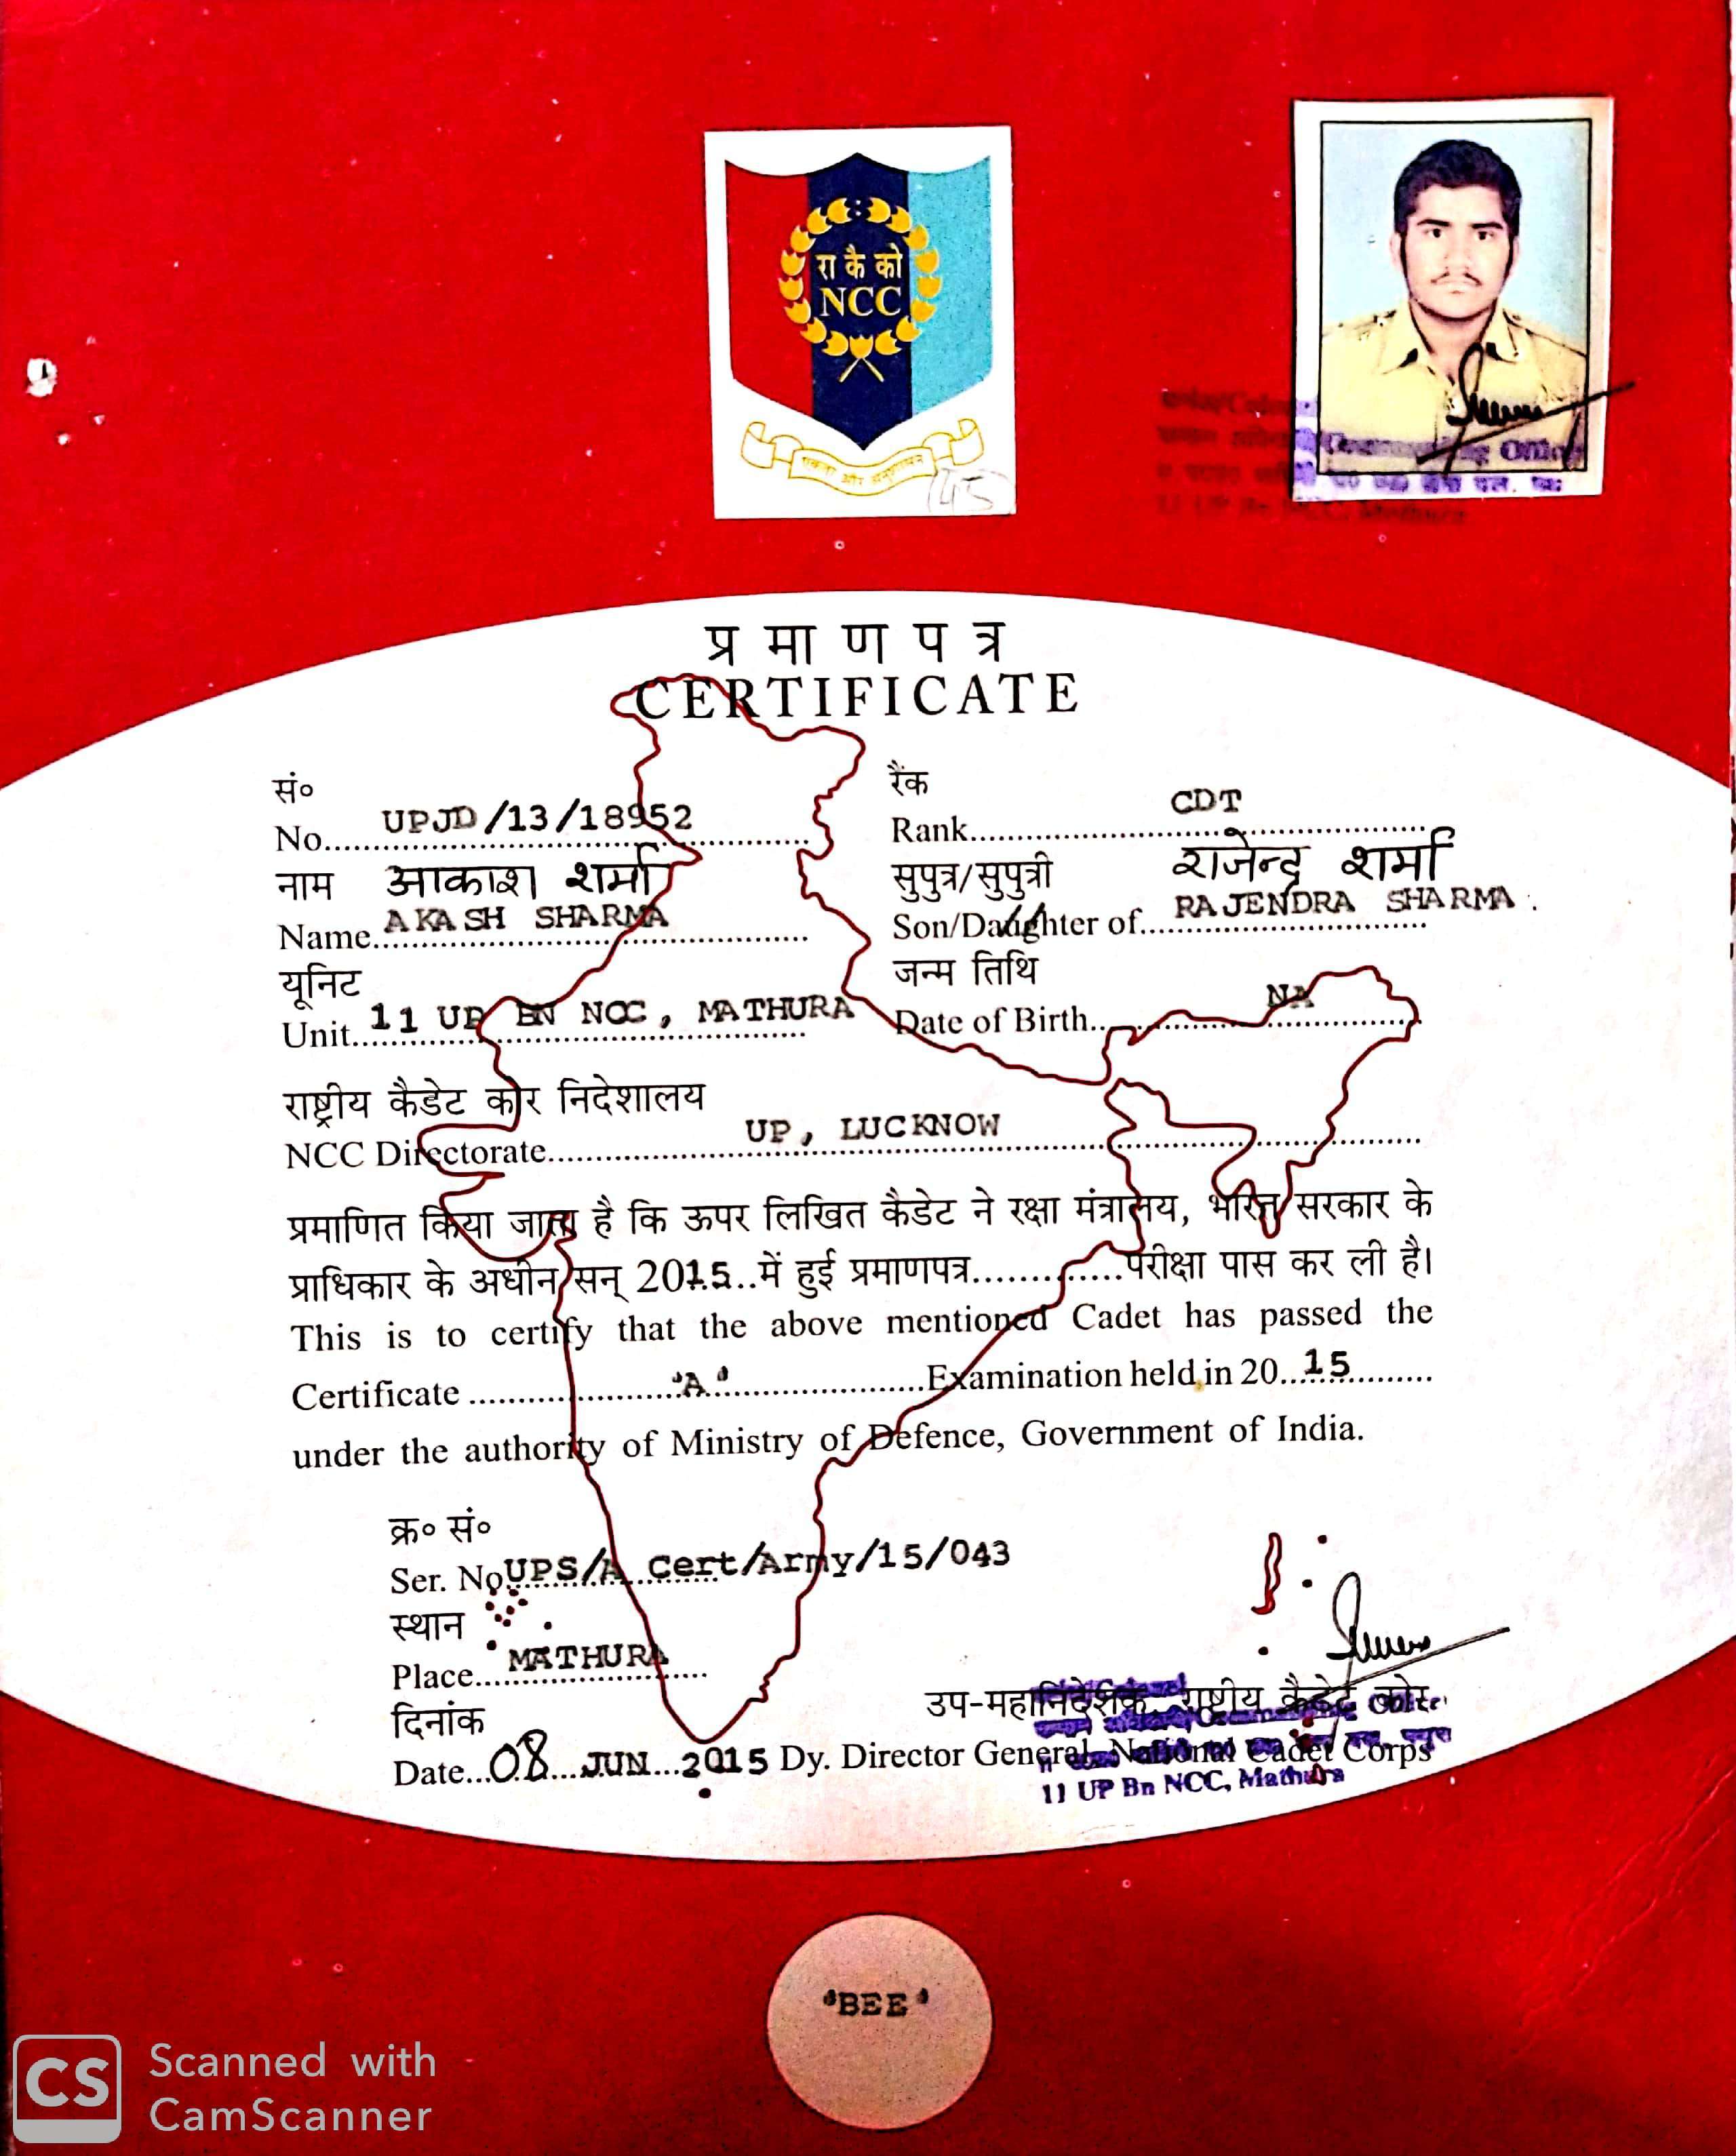 रा कै को
NCC
एकता और अनुशासन
45
Commanding Officer
11 UP Bn NCC, Mathura
प्रमाणपत्र
CERTIFICATE
सं०
No. UPJD/13/18952
रैंक
Rank CDT
नाम आकाश शर्मा
Name AKASH SHARMA
सुपुत्र/सुपुत्री राजेन्द्र शर्मा
Son/Daughter of RAJENDRA SHARMA.
यूनिट
Unit 11 UP BN NCC, MATHURA
जन्म तिथि
Date of Birth NA
राष्ट्रीय कैडेट कोर निदेशालय
NCC Directorate UP, LUCKNOW
प्रमाणित किया जाता है कि ऊपर लिखित कैडेट ने रक्षा मंत्रालय, भारत सरकार के
प्राधिकार के अधीन सन् 2015..में हुई प्रमाणपत्र.............परीक्षा पास कर ली है।
This is to certify that the above mentioned Cadet has passed the
Certificate 'A' Examination held in 20 15
under the authority of Ministry of Defence, Government of India.
क्र० सं०
Ser. No UPS/A Cert/Army/15/043
स्थान
Place MATHURA
दिनांक
Date 08 JUN 2015
उप-महानिदेशक, राष्ट्रीय कैडेट कोर
Dy. Director General, National Cadet Corps
11 UP Bn NCC, Mathura
'BEE'
CS
Scanned with
CamScanner